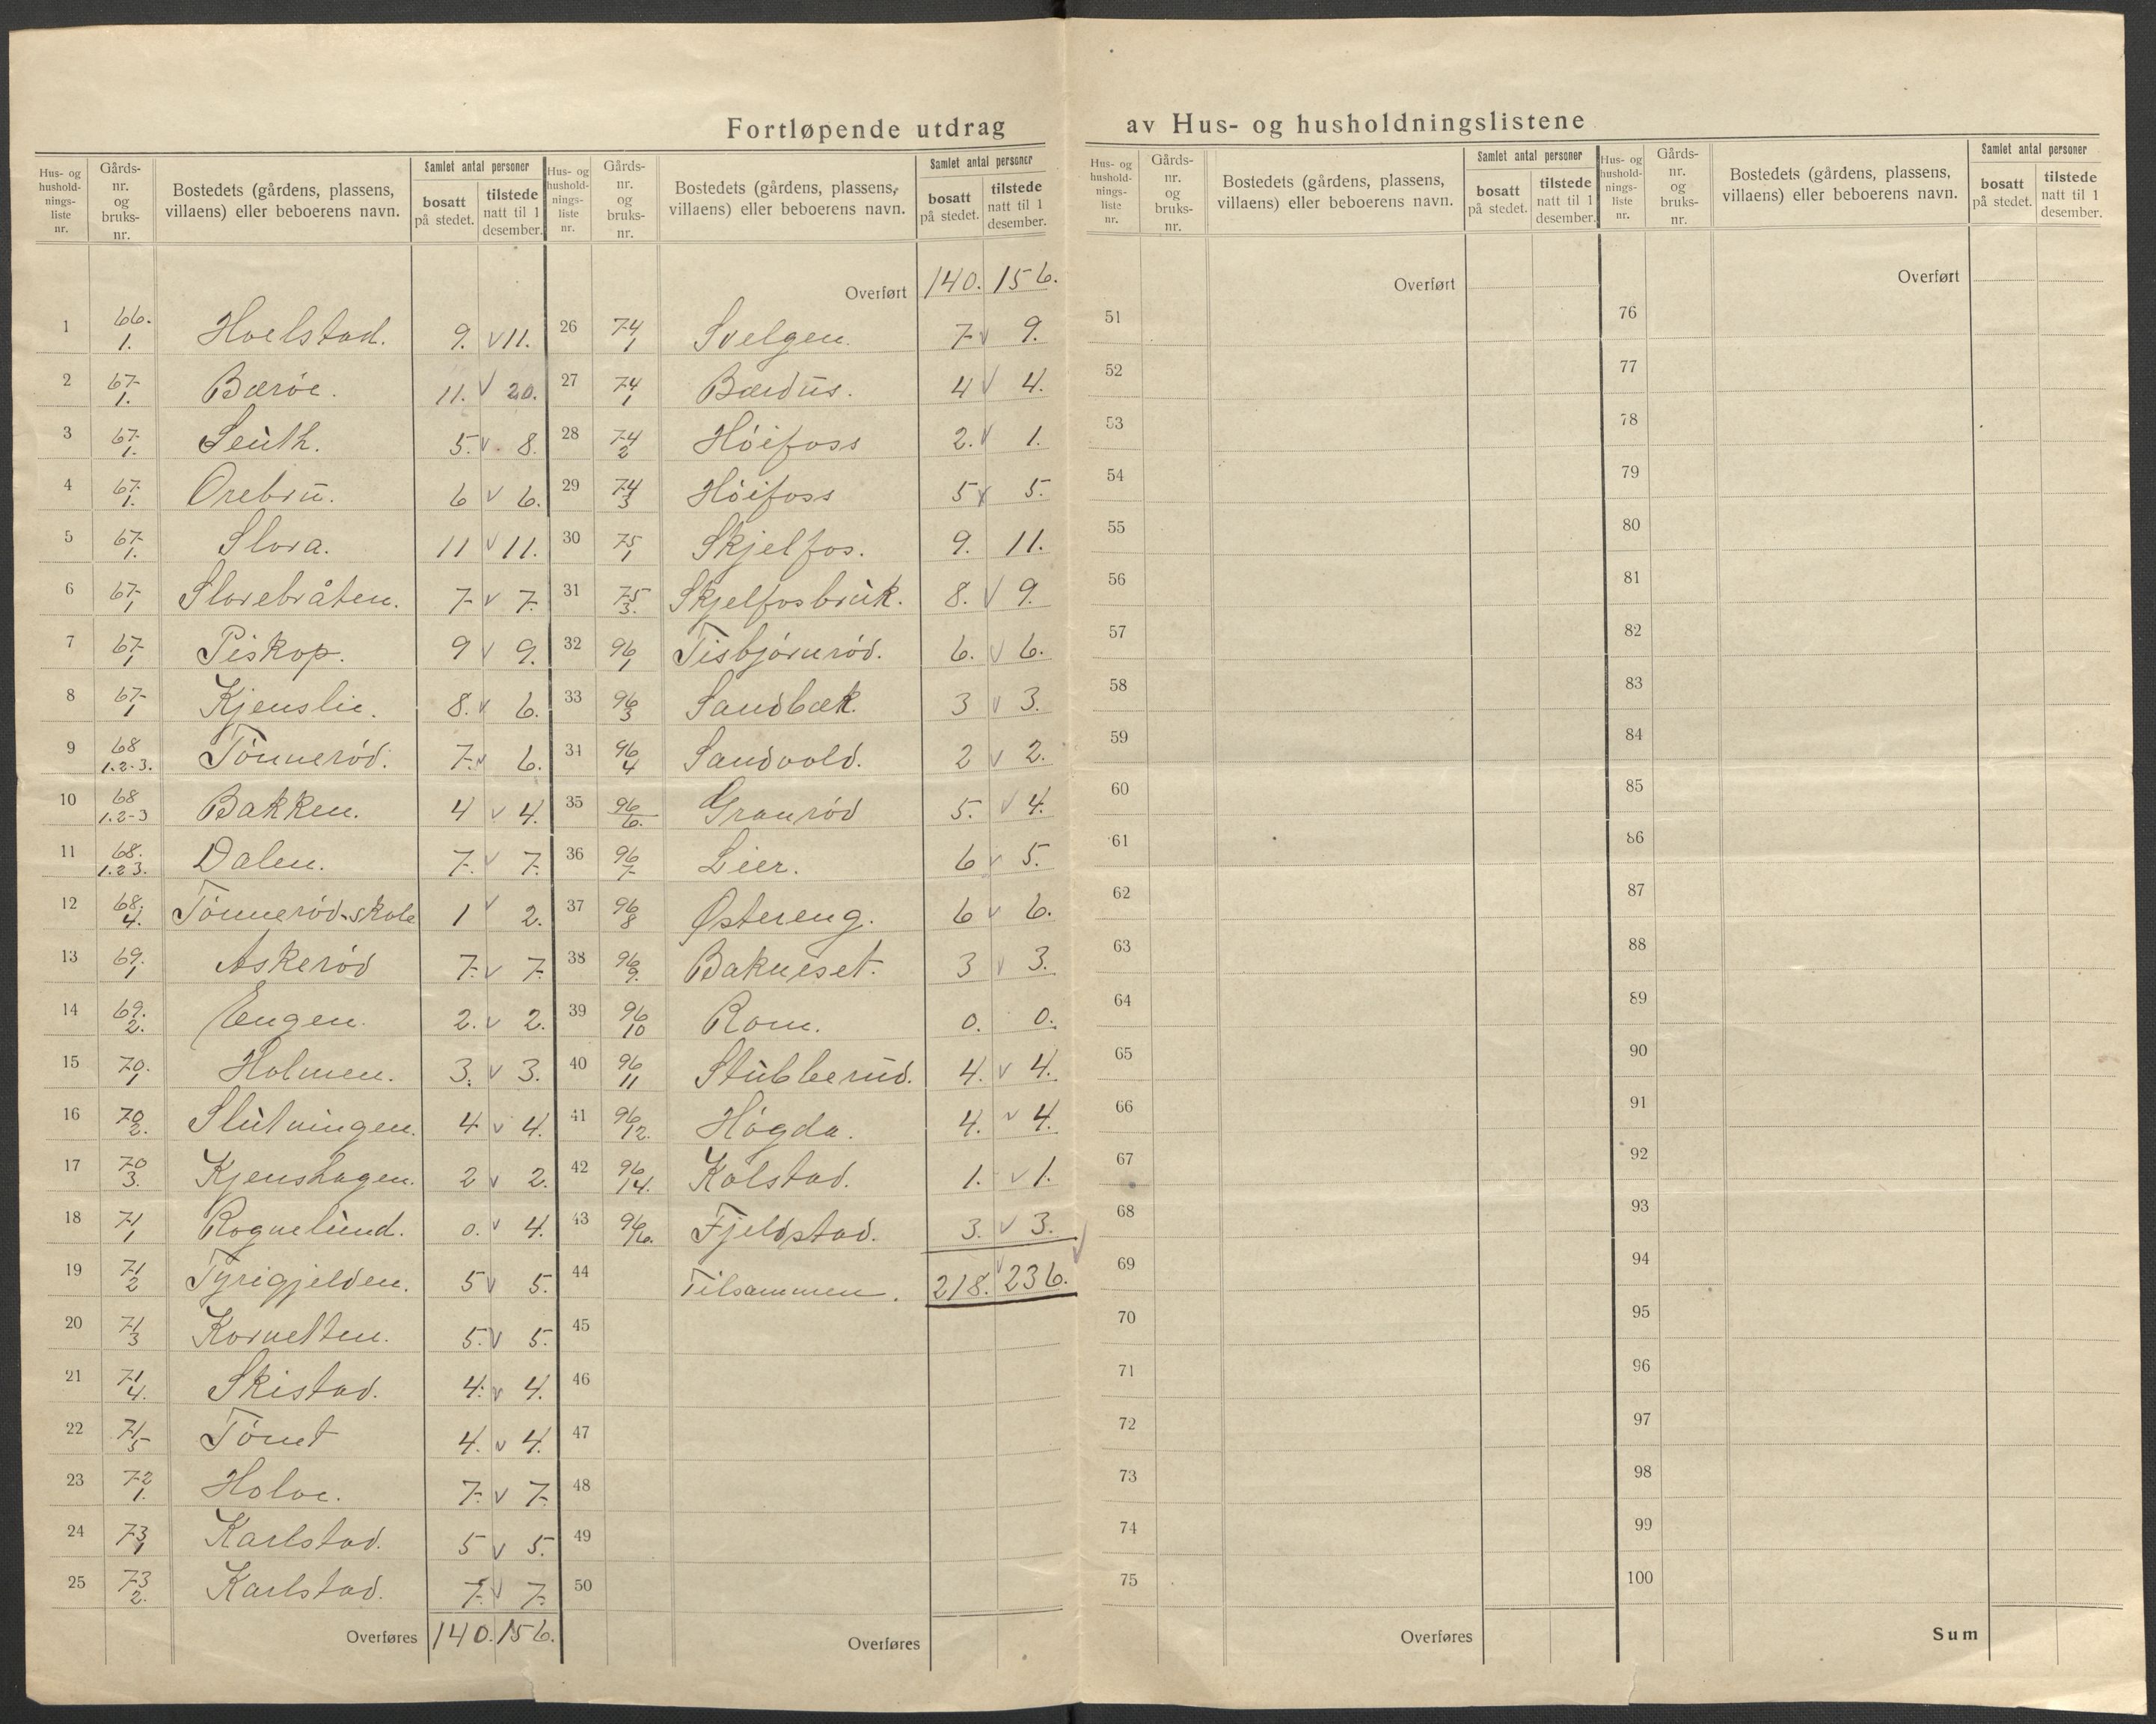 Fortløpende utdrag av Hus- og husholdningslistene
Hus- og hushold-nings-liste nr. | Gårds-nr. og bruks-nr. | Bostedets (gårdens, plassens, villaens) eller beboerens navn. | Samlet antal personer | bosatt på stedet. | tilstede natt til 1 desember.
1 66. 1. Hoelstad. 9. v 11.
2 67 1. Bærøe. 11. v 20.
3 67 1. Leuth. 5. v 8.
4 67 1. Orebru. 6 v 6.
5 67 1. Slora. 11 v 11.
6 67 1 Slorebråten. 7 v 7.
7 67 1 Piskop. 9 v 9.
8 67 1 Kjenslie. 8. v 6.
9 68 1.2-3. Tønnerød. 7. v 6.
10 68 1.2-3 Bakken. 4 v 4.
11 68. 1.2 3. Dalen. 7. v 7.
12 68. 4. Tønnerød-skole 1 v 2.
13 69. 1 Askerød 7. v 7.
14 69. 2. Engen. 2. v 2.
15 70. 1 Holmen. 3. v 3.
16 70 2. Slutningen. 4 v 4.
17 70 3. Kjenshagen. 2 v 2.
18 71 1 Rognelund. 0. v 4.
19 71 2 Tyrigjelden. 5 v 5.
20 71 3 Kornetten. 5. v 5.
21 71 4. Skistad. 4. v 4.
22 71 5 Tomt 4. v 4.
23 72 1. Holoe. 7. v 7.
24 73 1 Karlstad. 5 v 5.
25 73 2. Karlstad. 7. v 7.
Overføres 140. 156.
Hus- og hushold-nings-liste nr. | Gårds-nr. og bruks-nr. | Bostedets (gårdens, plassens, villaens) eller beboerens navn. | Samlet antal personer | bosatt på stedet. | tilstede natt til 1 desember.
Overført 140. 156.
26 74 1 Svelgen. 7 v 9.
27 74 1 4 v 4.
28 74 2 Høifoss 2. v 1.
29 74 3 Høifoss 5 v 5.
30 75 1 Skjelfos. 9. 11.
31 75 3. Skjelfosbruk. 8. v 9.
32 96 1 Tisbjørnrød. 6. v 6.
33 96 3 Sandbæk. 3 v 3.
34 96 4 Sandvold. 2 v 2.
35 96 6. Granrød 5. v 4.
36 96 7 Lier. 6 v 5.
37 96 8 Østereng. 6 v 6.
38 96 9. Bakneset. 3 v 3.
39 96 10 Rom. 0. 0.
40 96 11 Stubberud. 4. v 4.
41 96 12. Høgda. 4. v 4.
42 96 14. Kolstad. 1. v 1.
43 96 16. Fjeldstad. 3. v 3.
44 Tilsammen. 218. v 236.
45
46
47
48
49
50
Overføres
Hus- og hushold-nings-liste nr. | Gårds-nr. og bruks-nr. | Bostedets (gårdens, plassens, villaens) eller beboerens navn. | Samlet antal personer | bosatt på stedet. | tilstede natt til 1 desember.
Overført
51
52
53
54
55
56
57
58
59
60
61
62
63
64
65
66
67
68
69
70
71
72
73
74
75
Overføres
Hus- og hushold-nings-liste nr. | Gårds-nr. og bruks-nr. | Bostedets (gårdens, plassens, villaens) eller beboerens navn. | Samlet antal personer | bosatt på stedet. | tilstede natt til 1 desember.
Overført
76
77
78
79
80
81
82
83
84
85
86
87
88
89
90
91
92
93
94
95
96
97
98
99
100
Sum